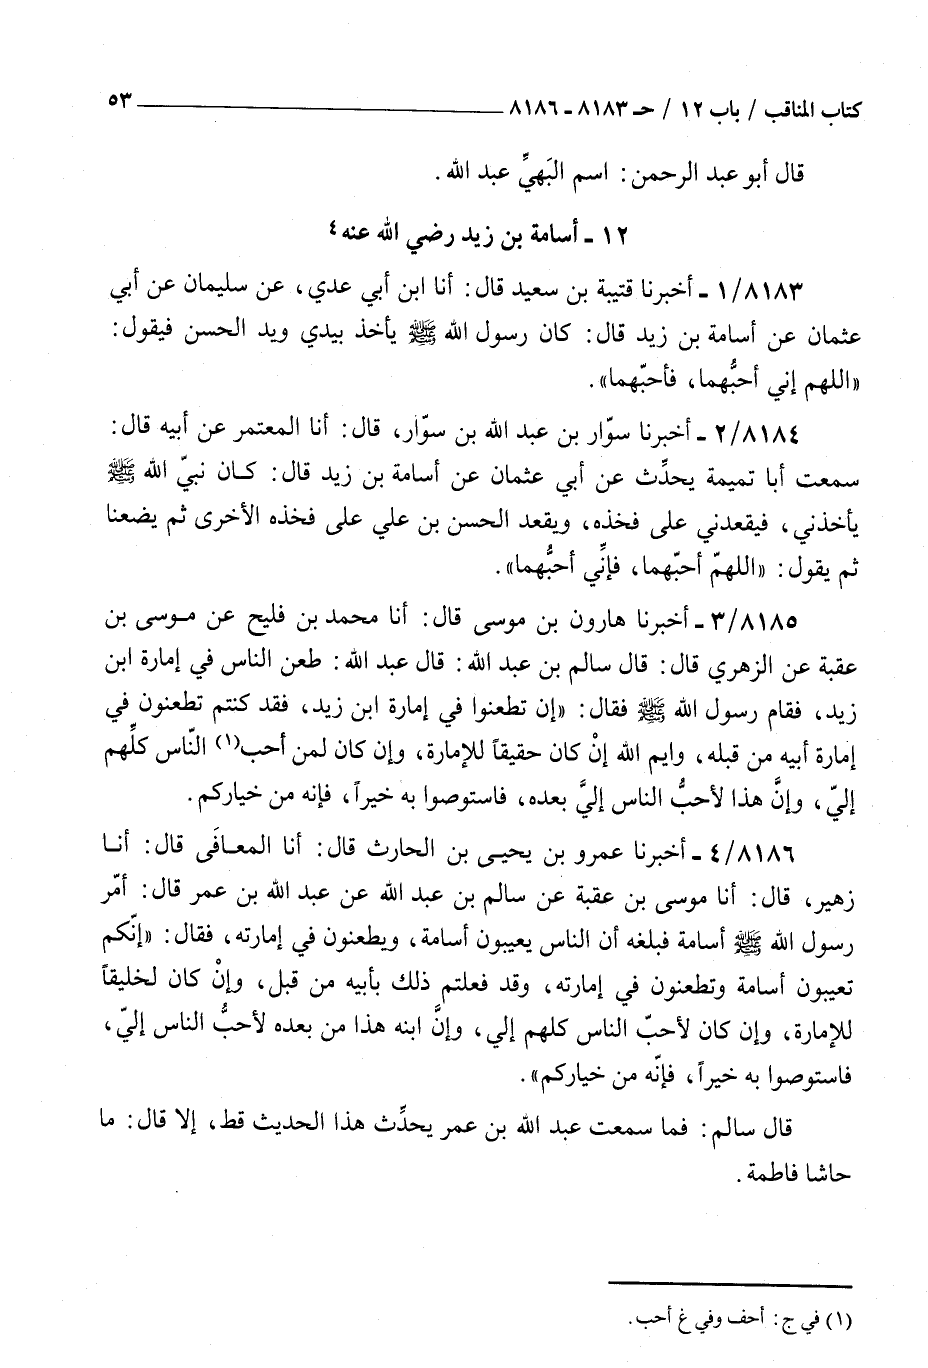 كتاب المناقب / باب ١٢ / حـ ٨١٨٣ ـ ٨١٨٦ ٥٣
قال أبو عبد الرحمن: اسم البَهيِّ عبد الله.
١٢ ـ أسامة بن زيد رضي الله عنه ٤
١/٨١٨٣ ـ أخبرنا قتيبة بن سعيد قال: أنا ابن أبي عدي، عن سليمان عن أبي
عثمان عن أسامة بن زيد قال: كان رسول الله ﷺ يأخذ بيدي ويد الحسن فيقول:
«اللهم إني أحبُّهما، فأحبّهما».
٢/٨١٨٤ ـ أخبرنا سوّار بن عبد الله بن سوّار، قال: أنا المعتمر عن أبيه قال:
سمعت أبا تميمة يحدِّث عن أبي عثمان عن أسامة بن زيد قال: كـان نبيّ الله ﷺ
يأخذني، فيقعدني على فخذه، ويقعد الحسن بن علي على فخذه الأخرى ثم يضعنا
ثم يقول: «اللهمّ أحبّهما، فإنِّي أحبُّهما».
٣/٨١٨٥ ـ أخبرنا هارون بن موسى قال: أنا محمد بن فليح عن مـوسى بن
عقبة عن الزهري قال: قال سالم بن عبد الله: قال عبد الله: طعن الناس في إمارة ابن
زيد، فقام رسول الله ﷺ فقال: «إن تطعنوا في إمارة ابن زيد، فقد كنتم تطعنون في
إمارة أبيه من قبله، وايم الله إنْ كان حقيقاً للإمارة، وإن كان لمن أحب(١) النّاس كلِّهم
إليّ، وإنَّ هذا لأحبُّ الناس إليَّ بعده، فاستوصوا به خيراً، فإنه من خياركم.
٤/٨١٨٦ ـ أخبرنا عمرو بن يحيـى بن الحارث قال: أنا المعـافَى قال: أنـا
زهير، قال: أنا موسى بن عقبة عن سالم بن عبد الله عن عبد الله بن عمر قال: أمّر
رسول الله ﷺ أسامة فبلغه أن الناس يعيبون أسامة، ويطعنون في إمارته، فقال: «إنّكم
تعيبون أسامة وتطعنون في إمارته، وقد فعلتم ذلك بأبيه من قبل، وإنْ كان لخليقاً
للإمارة، وإن كان لأحبّ الناس كلهم إلي، وإنَّ ابنه هذا من بعده لأحبُّ الناس إليّ،
فاستوصوا به خيراً، فإنّه من خياركم».
قال سالم: فما سمعت عبد الله بن عمر يحدِّث هذا الحديث قط، إلا قال: ما
حاشا فاطمة.
(١) في ج: أحف وفي غ أحب.